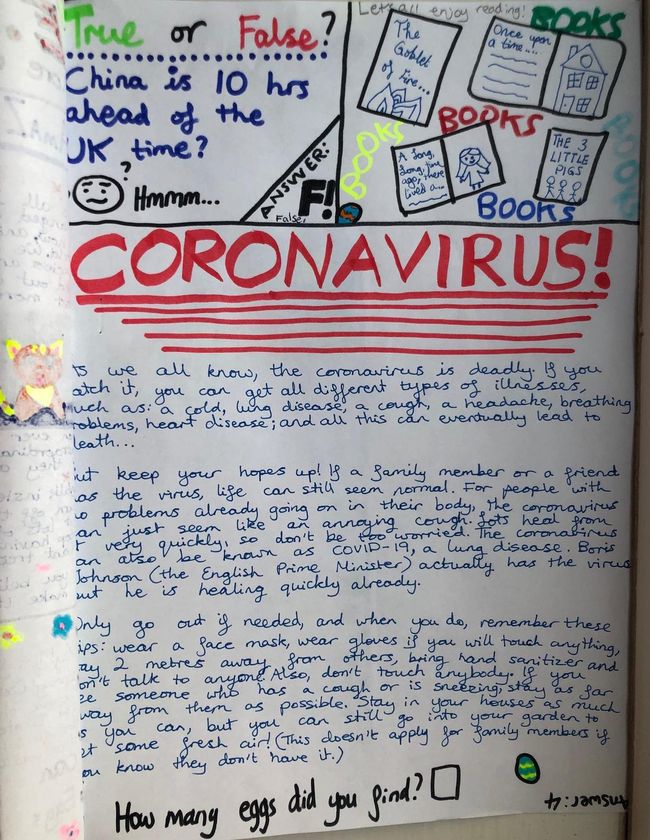 True or False?
China is 10 hrs
ahead of the
UK time?
?
Hmmm...
ANSWER:
F!
False,
Let's all enjoy reading!
BOOKS
The
Goblet
of Fire...
Once upon
a time...
BOOKS
BOOKS
BOOKS
A long,
long, time
ago, there
lived a...
THE 3
LITTLE
PIGS
BOOKS
CORONAVIRUS!
s we all know, the coronavirus is deadly. If you
atch it, you can get all different types of illnesses,
uch as: a cold, lung disease, a cough, a headache, breathing
roblems, heart disease; and all this can eventually lead to
leath...
ut keep your hopes up! If a family member or a friend
as the virus, life can still seem normal. For people with
o problems already going on in their body, the coronavirus
an just seem like an annoying cough. Lots heal from
t very quickly, so don't be too worried. The coronavirus
an also be known as COVID-19, a lung disease. Boris
Johnson (the English Prime Minister) actually has the virus
ut he is healing quickly already.
Only go out if needed, and when you do, remember these
ips: wear a face mask, wear gloves if you will touch anything,
ay 2 metres away from others, bring hand sanitizer and
on't talk to anyone. Also, don't touch anybody. If you
ee someone who has a cough or is sneezing, stay as far
way from them as possible. Stay in your houses as much
s you can, but you can still go into your garden to
et some fresh air! (This doesn't apply for family members if
ou know they don't have it.)
How many eggs did you find?
Answer: 4